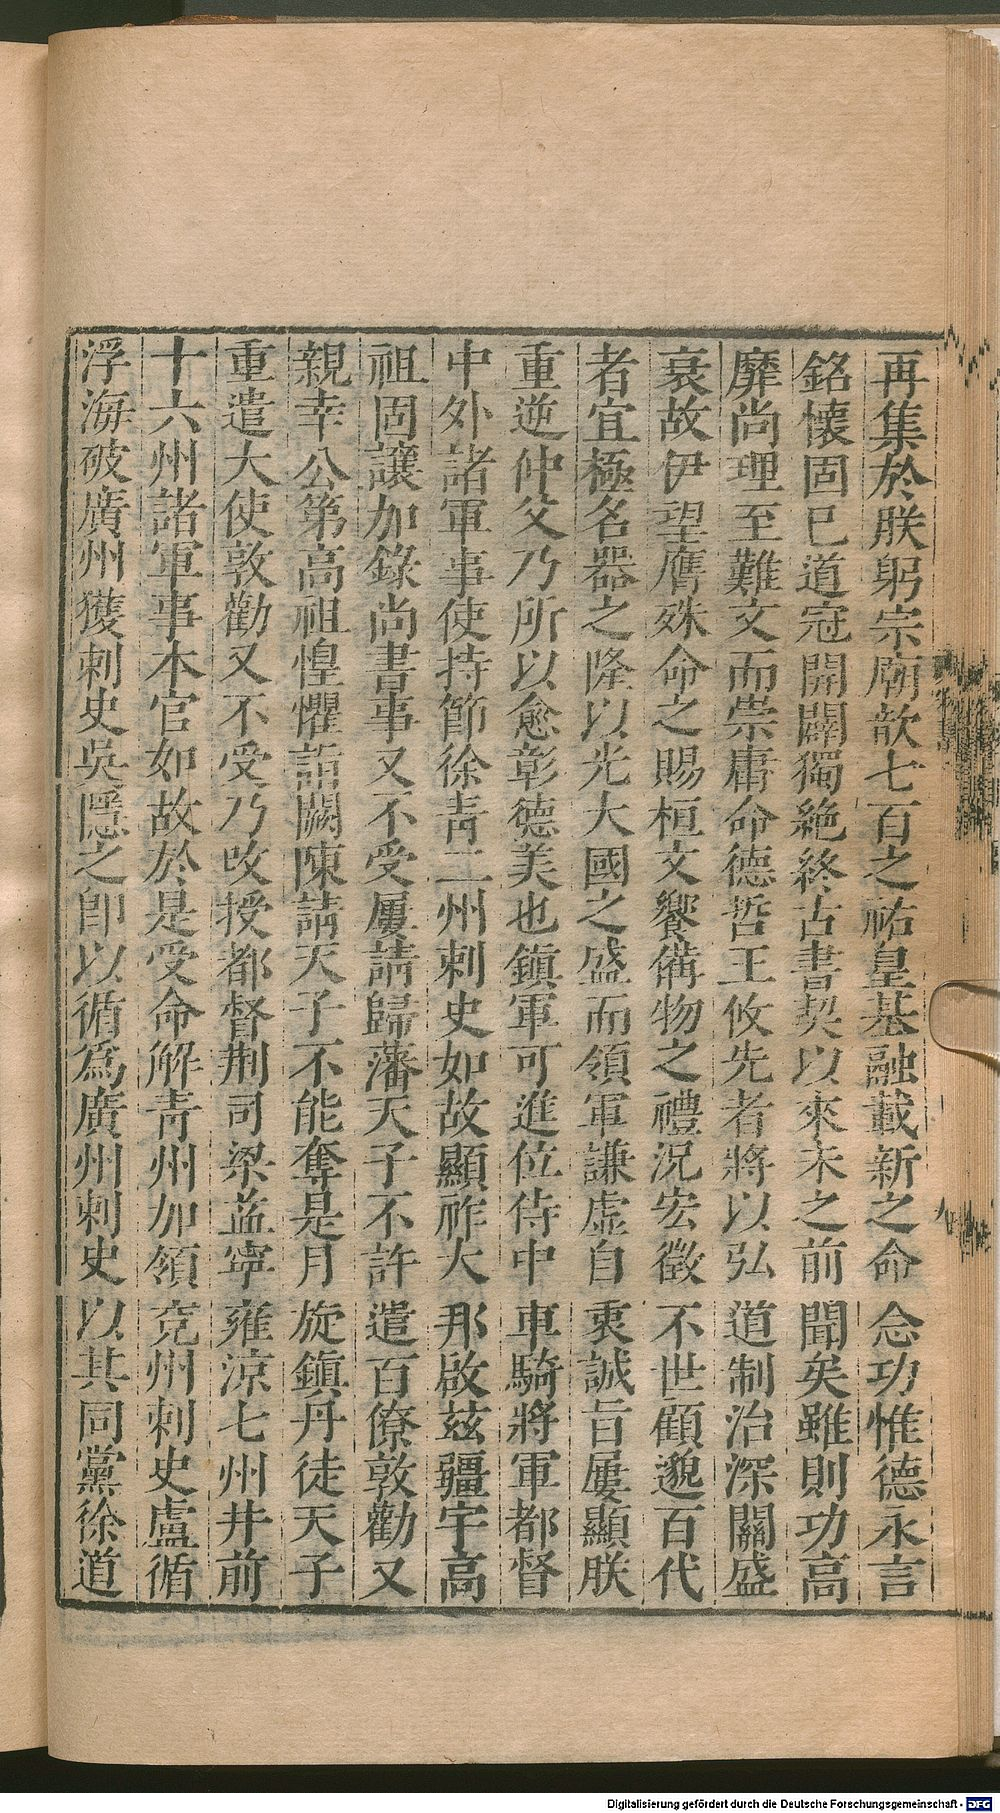 再集於朕躬宗廟歆七百之祐皇基融載新之命念功惟德永言
銘懷固已道冠開闢獨絶終古書契以來未之前聞矣雖則功高
靡尚理至難文而崇庸命德哲王攸先者將以弘道制治深關盛
衰故伊望膺殊命之賜桓文饗備物之禮況宏徽不世顧邈百代
者宜極名器之隆以光大國之盛而領軍謙虛自衷誠旨屢顯朕
重逆仲父乃所以愈彰德美也鎭軍可進位侍中車騎將軍都督
中外諸軍事使持節徐靑二州刺史如故顯祚大那啟茲疆宇高
祖固讓加錄尚書事又不受屢請歸藩天子不許遣百僚敦勸又
親幸公第高祖惶懼詣闕陳請天子不能奪是月旋鎭丹徒天子
重遣大使敦勸又不受乃攺授都督荆司梁益寧雍涼七州井前
十六州諸軍事本官如故於是受命解靑州加領兗州刺史盧循
浮海破廣州獲刺史吳隱之卽以循爲廣州刺史以其同黨徐道
Digitalisierung gefördert durch die Deutsche Forschungsgemeinschaft - DFG